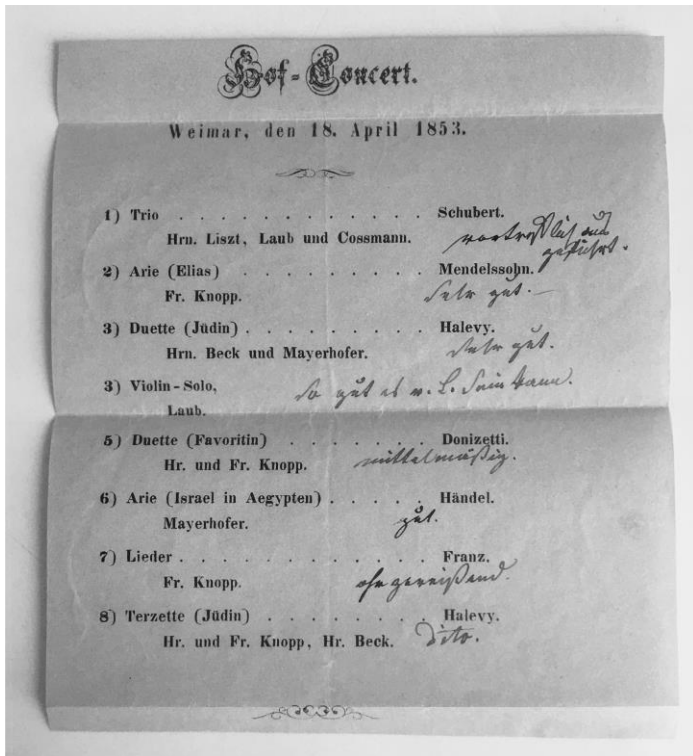 Hof-Concert.
Weimar, den 18. April 1853.
1) Trio . . . . . . . . . . . . Schubert.
Hrn. Liszt, Laub und Cossmann. vortrefflich aus
geführt.
2) Arie (Elias) . . . . . . . . . Mendelssohn.
Fr. Knopp. Sehr gut.—
3) Duette (Jüdin) . . . . . . . . Halevy.
Hrn. Beck und Mayerhofer. Sehr gut.
3) Violin-Solo, So gut es v. L. sein kann.
Laub.
5) Duette (Favoritin) . . . . . . . Donizetti.
Hr. und Fr. Knopp. mittelmäßig.
6) Arie (Israel in Aegypten) . . . . . Händel.
Mayerhofer. gut.
7) Lieder . . . . . . . . . . . . Franz.
Fr. Knopp. ohrzereißend.
8) Terzette (Jüdin) . . . . . . . Halevy.
Hr. und Fr. Knopp, Hr. Beck. Dito.